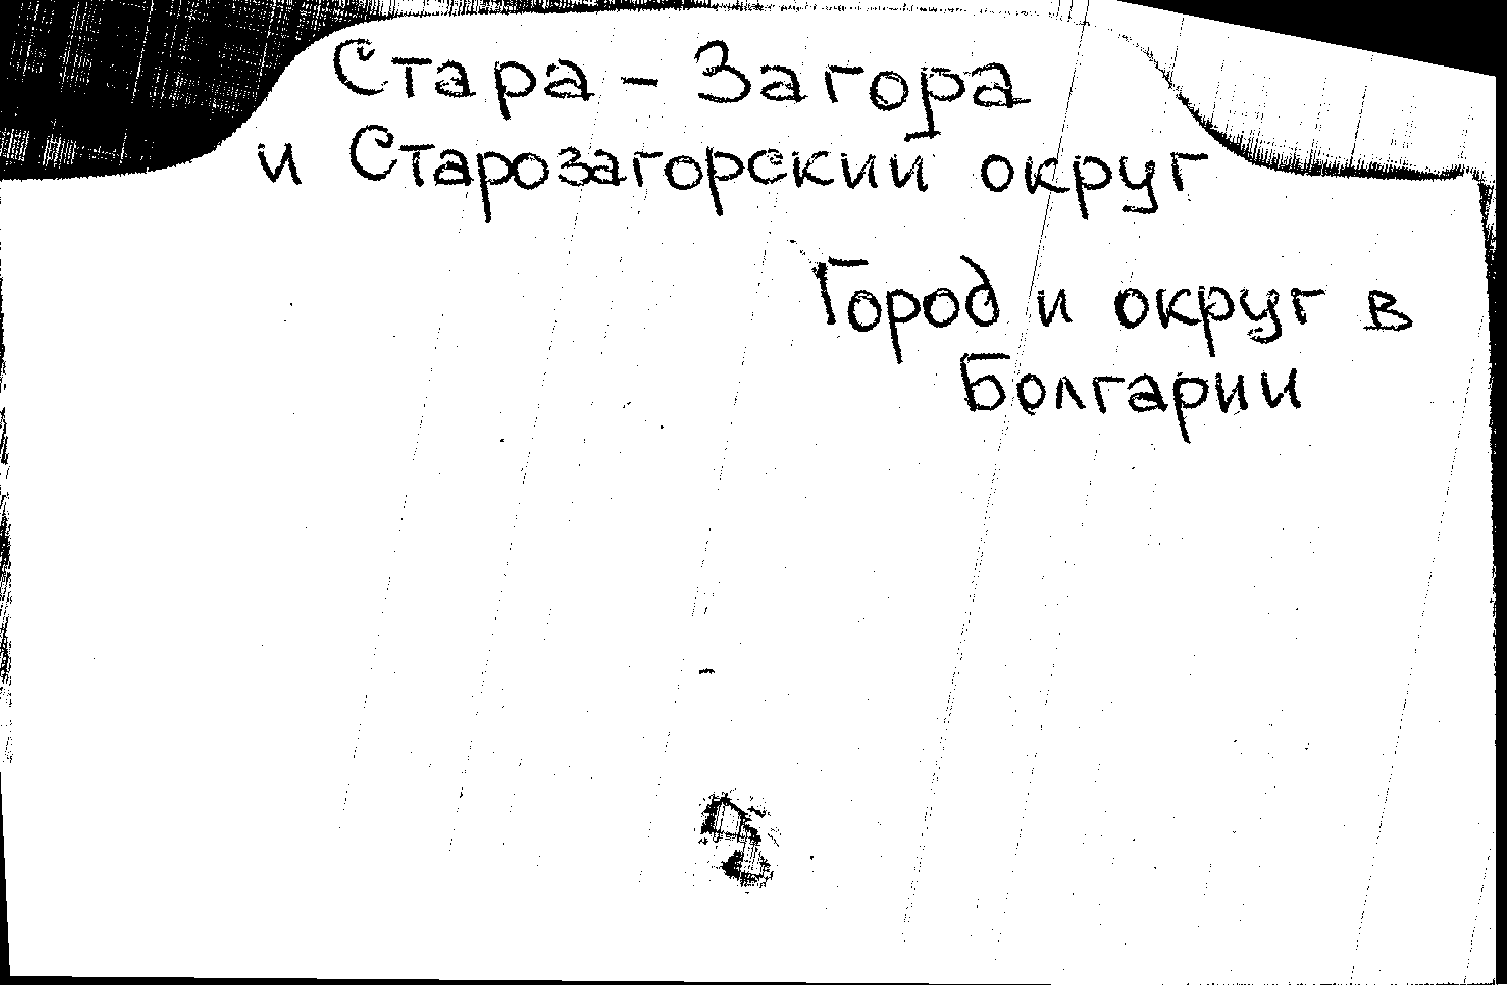 Стара - Загора
и Старозагорский округ
Город и округ в
Болгарии